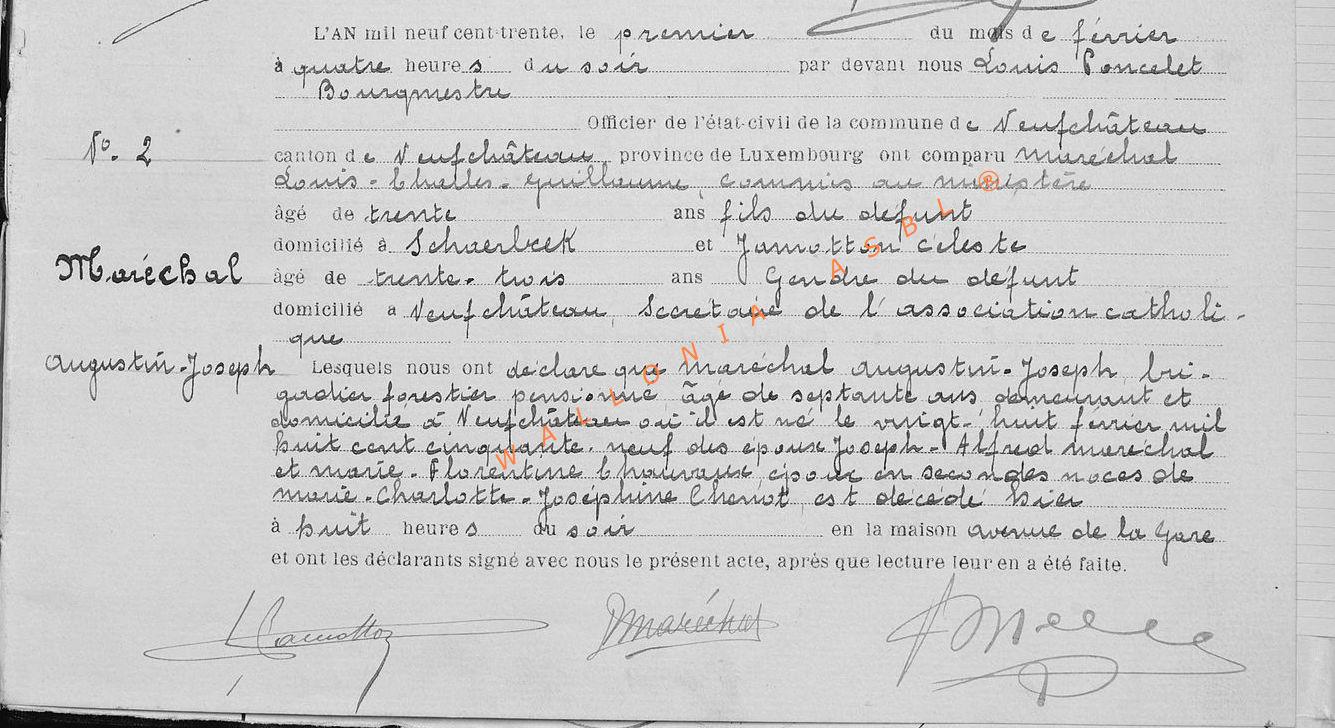 L'AN mil neuf cent-trente, le premier du mois de février
à quatre heures du soir par devant nous Louis Poncelet
Bourgmestre
Officier de l'état-civil de la commune de Neufchâteau
No. 2
canton de Neufchâteau, province de Luxembourg ont comparu Maréchal
Louis-Charles-Guillaume, commis au ministère
âgé de trente ans fils du défunt
domicilié à Schaerbeek et Jamotton Céleste
Maréchal
âgé de trente-trois ans Gendre du défunt
domicilié à Neufchâteau, Secrétaire de l'association catholi-
que
Augustin-Joseph
Lesquels nous ont déclaré que Maréchal Augustin-Joseph, bri-
gadier forestier pensionné, âgé de septante ans demeurant et
domicilié à Neufchâteau où il est né le vingt-huit février mil
huit cent cinquante-neuf des époux Joseph-Alfred Maréchal
et Marie-Florentine Chauvaux, époux en secondes noces de
Marie-Charlotte-Joséphine Chenot, est décédé hier
à huit heures du soir en la maison avenue de la Gare
et ont les déclarants signé avec nous le présent acte, après que lecture leur en a été faite.
Jamotton Maréchal
WALLONIA ASBL ®